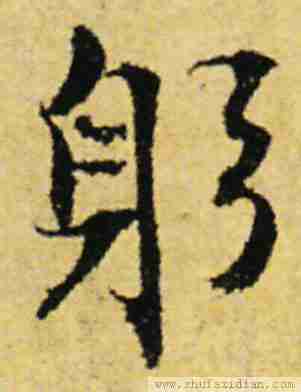 躬
www.shufazidian.com